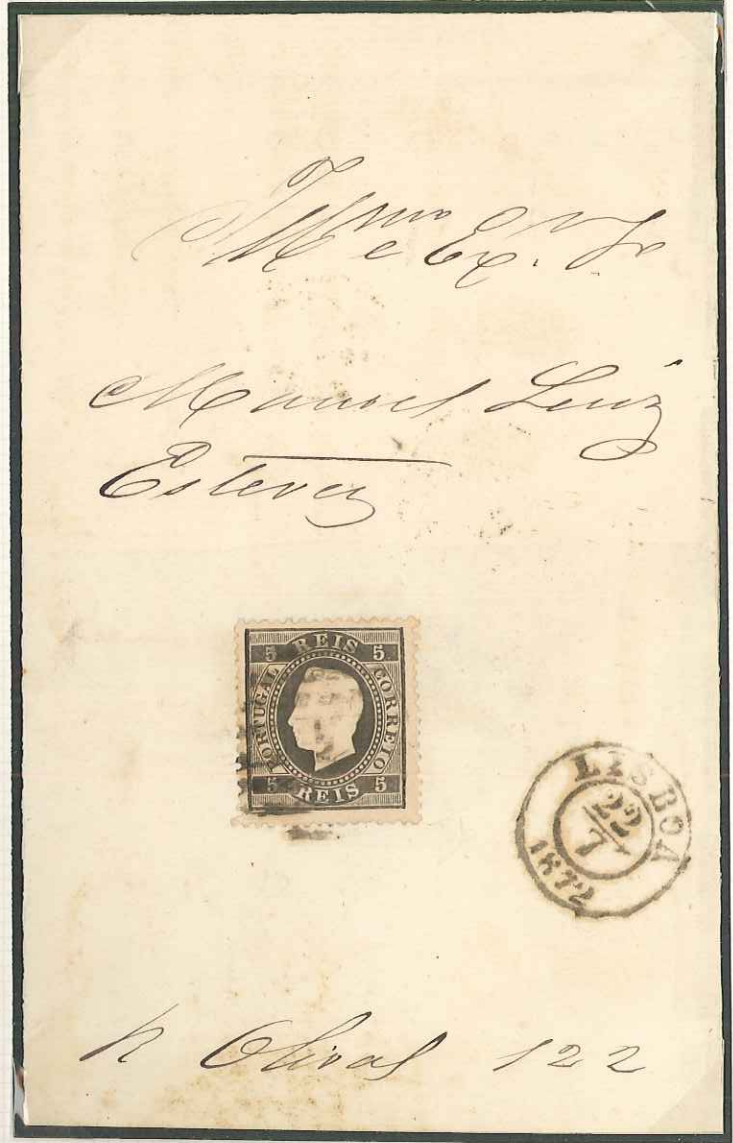 Illmo e Ex. Sr
Manoel Luiz
Estevez
5 REIS 5
PORTUGAL
CORREIO
5 REIS 5
LISBOA
22
7
1872
R Olival 122